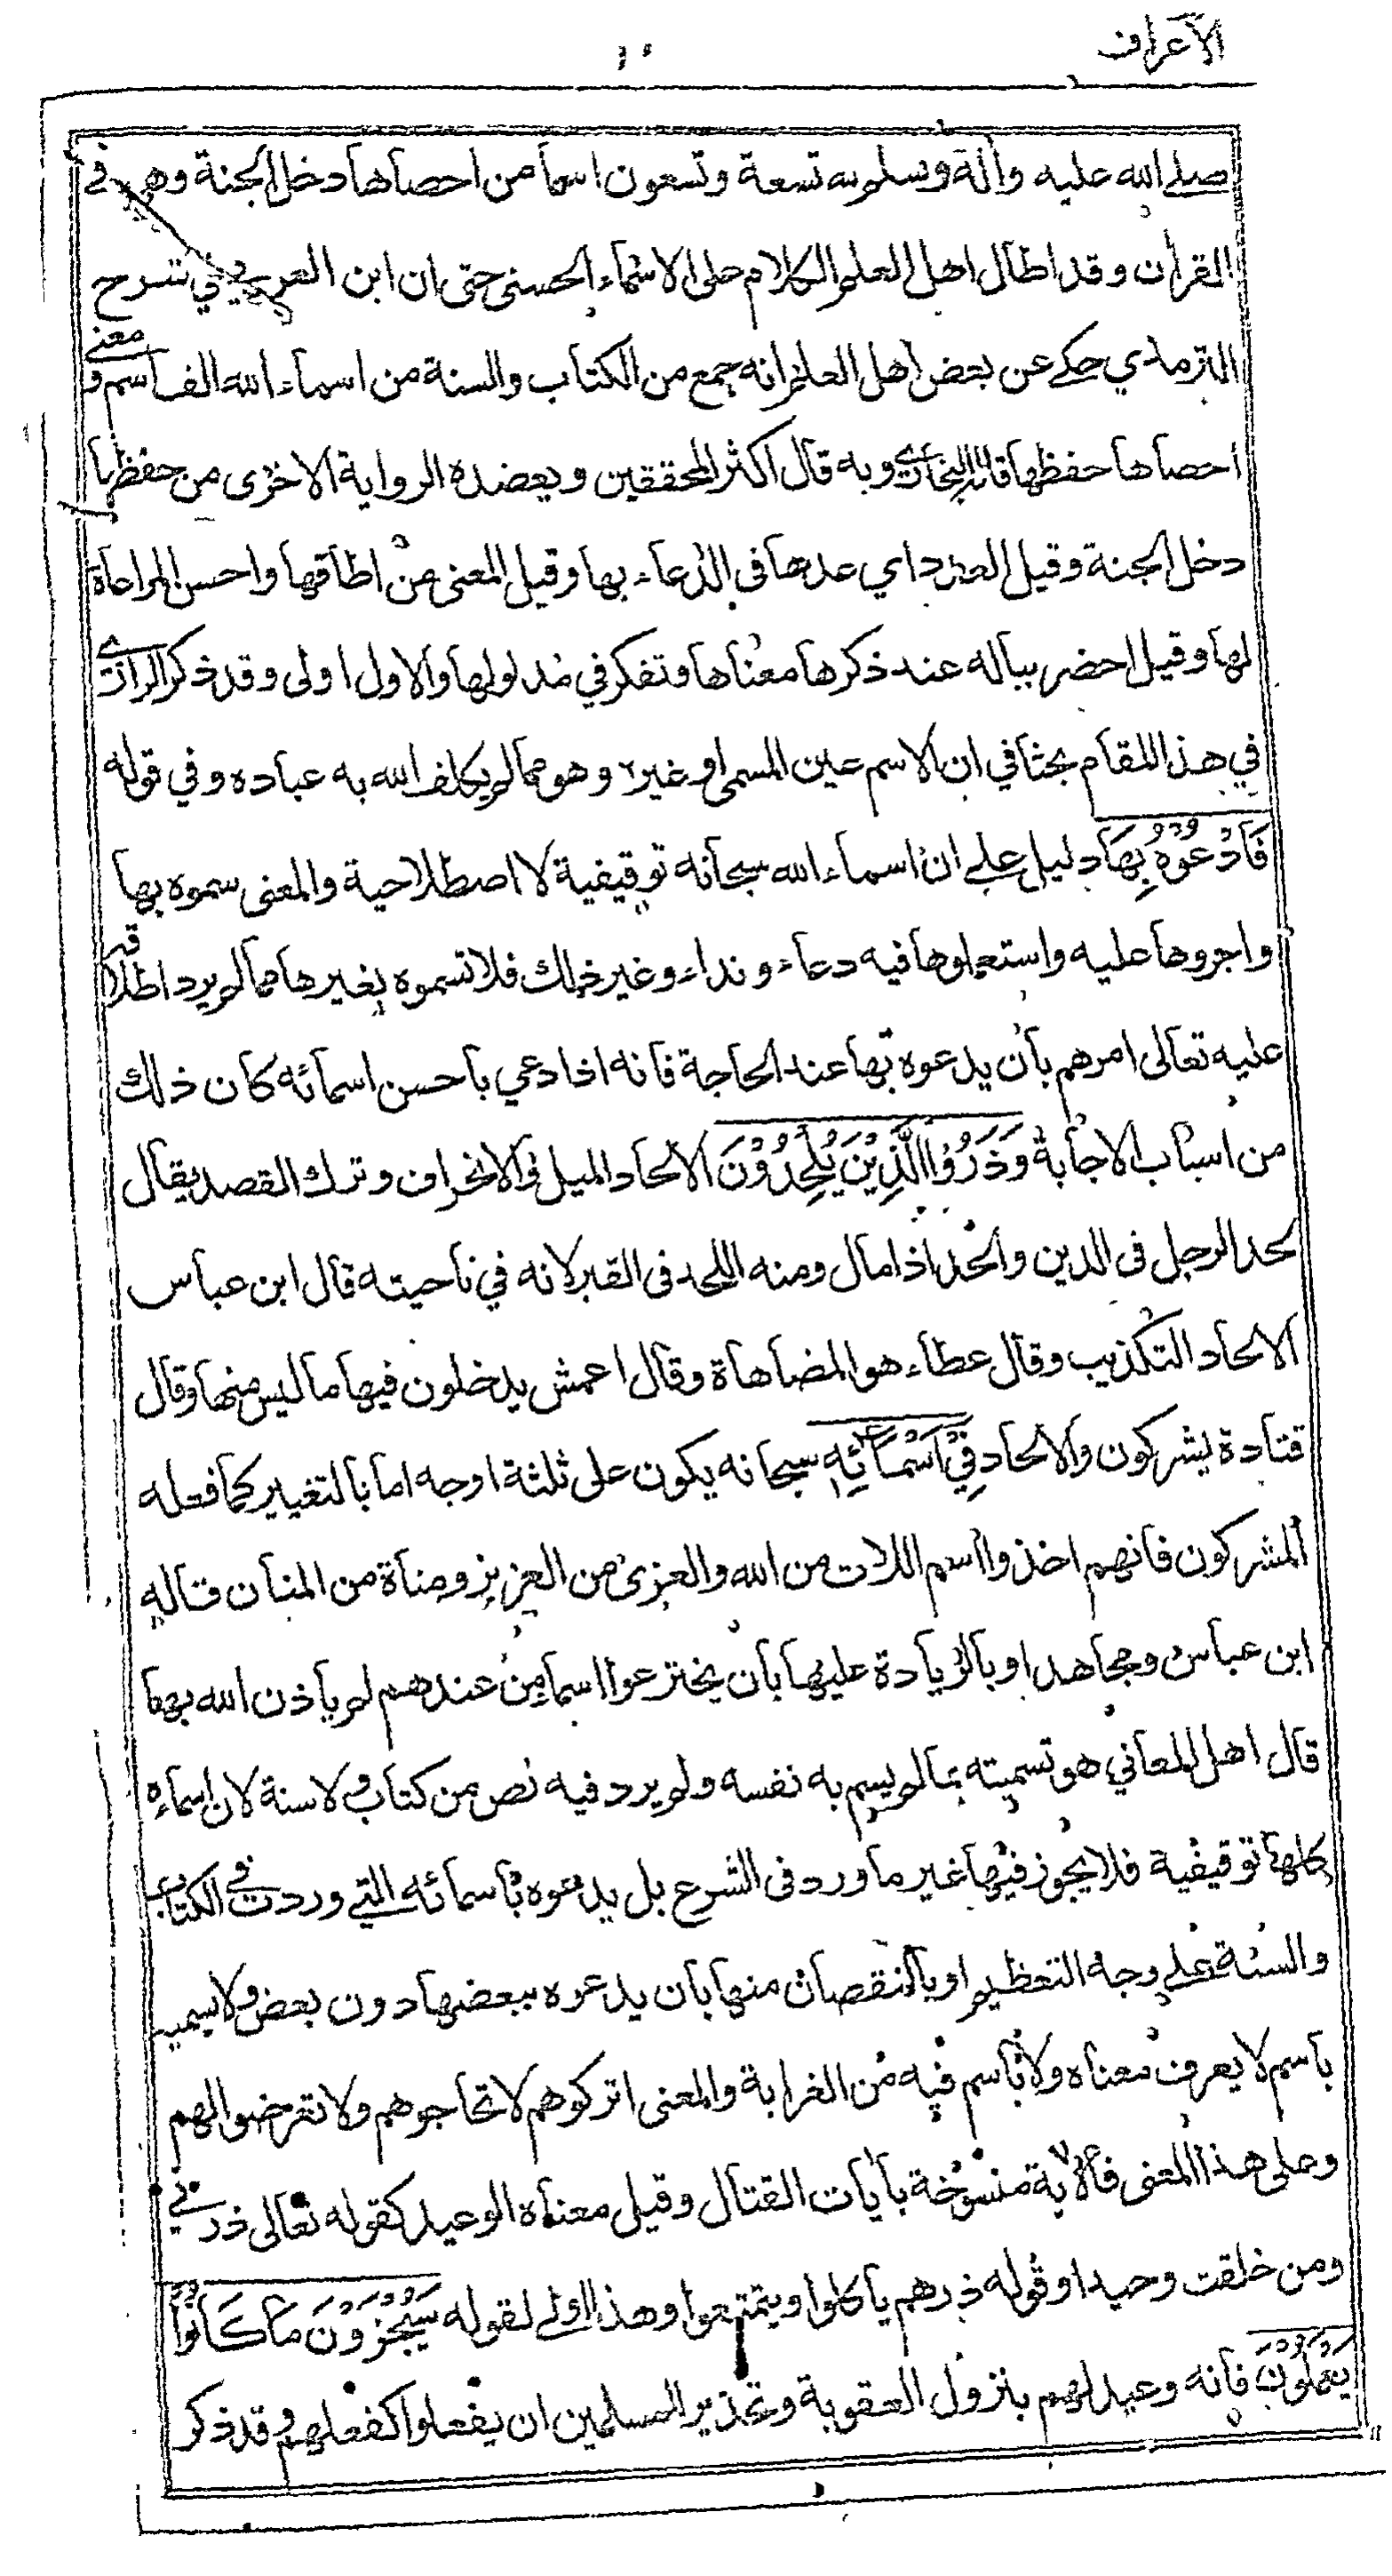 الأعراف
صلى الله عليه وآله وسلم لله تسعة وتسعون اسما من احصاها دخل الجنة وهي في
القرآن وقد اطال اهل العلم الكلام على الاسماء الحسنى حتى ان ابن العربي في شرح
الترمذي حكى عن بعض اهل العلم انه جمع من الكتاب والسنة من اسماء الله الف اسم و معنى
احصاها حفظها قاله البخاري وبه قال اكثر المحققين ويعضده الرواية الاخرى من حفظها
دخل الجنة وقيل العد اي عدها في الدعاء بها وقيل المعنى من اطاقها واحسن المراعاة
لها وقيل احضر بباله عند ذكرها معناها وتفكر في مدلولها والاول اولى وقد ذكر الرازي
في هذا المقام بحثا في ان الاسم عين المسمى او غيره وهو مما لم يكلف الله به عباده وفي قوله
فَادْعُوهُ بِهَا دليل على ان اسماء الله سبحانه توقيفية لا اصطلاحية والمعنى سموه بها
واجروها عليه واستعملوها فيه دعاء ونداء وغير ذلك فلا تسموه بغيرها مما لم يرد اطلاقه
عليه تعالى امرهم بان يدعوه بها عند الحاجة فانه اذا دعي باحسن اسمائه كان ذلك
من اسباب الاجابة وَذَرُوا الَّذِينَ يُلْحِدُوْنَ الالحاد الميل والانحراف وترك القصد يقال
لحد الرجل في الدين والحد اذا مال ومنه اللحد في القبر لانه في ناحيته قال ابن عباس
الالحاد التكذيب وقال عطاء هو المضاهاة وقال اعمش يدخلون فيها ما ليس منها وقال
قتادة يشركون والالحاد فِيْ اَسْمَائِهِ سبحانه يكون على ثلثة اوجه اما بالتغيير كما فعله
المشركون فانهم اخذوا اسم اللات من الله والعزى من العزيز ومناة من المنان قاله
ابن عباس ومجاهد او بالزيادة عليها بان يخترعوا اسما من عندهم لم ياذن الله بها
قال اهل المعاني هو تسميته بما لم يسم به نفسه ولم يرد فيه نص من كتاب ولا سنة لان اسماءه
كلها توقيفية فلا يجوز فيها غير ما ورد في الشرع بل يدعوه باسمائه التي وردت في الكتاب
والسنة على وجه التعظيم او بالنقصان منها بان يدعوه ببعضها دون بعض ولا يسميه
باسم لا يعرف معناه ولا باسم فيه من الغرابة والمعنى اتركوهم لا تحاجوهم ولا تعرضوا لهم
وعلى هذا المعنى فالآية منسوخة بآيات القتال وقيل معناه الوعيد كقوله تعالى ذرني
ومن خلقت وحيدا وقوله ذرهم ياكلوا ويتمتعوا وهذا اولى لقوله سَيُجْزَوْنَ مَا كَانُوْا
يَعْمَلُوْنَ فانه وعيد لهم بنزول العقوبة وتحذير المسلمين ان يفعلوا كفعلهم وقد ذكر